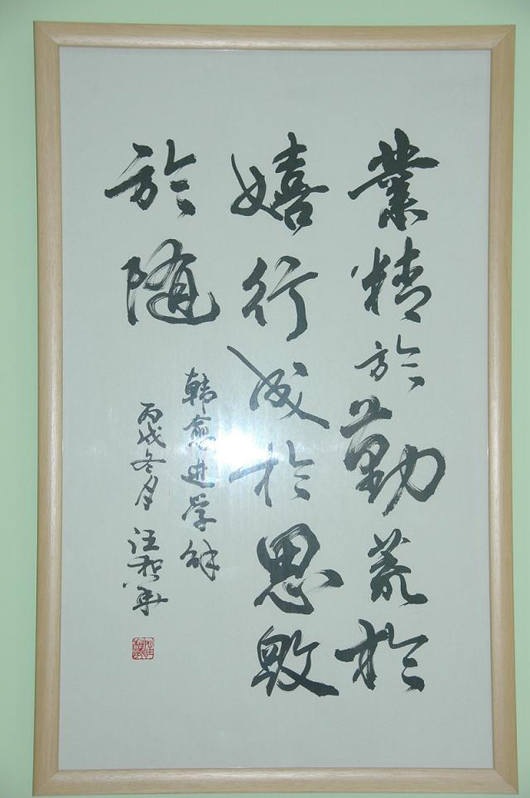 業精於勤荒於
嬉行成於思毀
於随
韩愈进学解
丙戌冬月汪